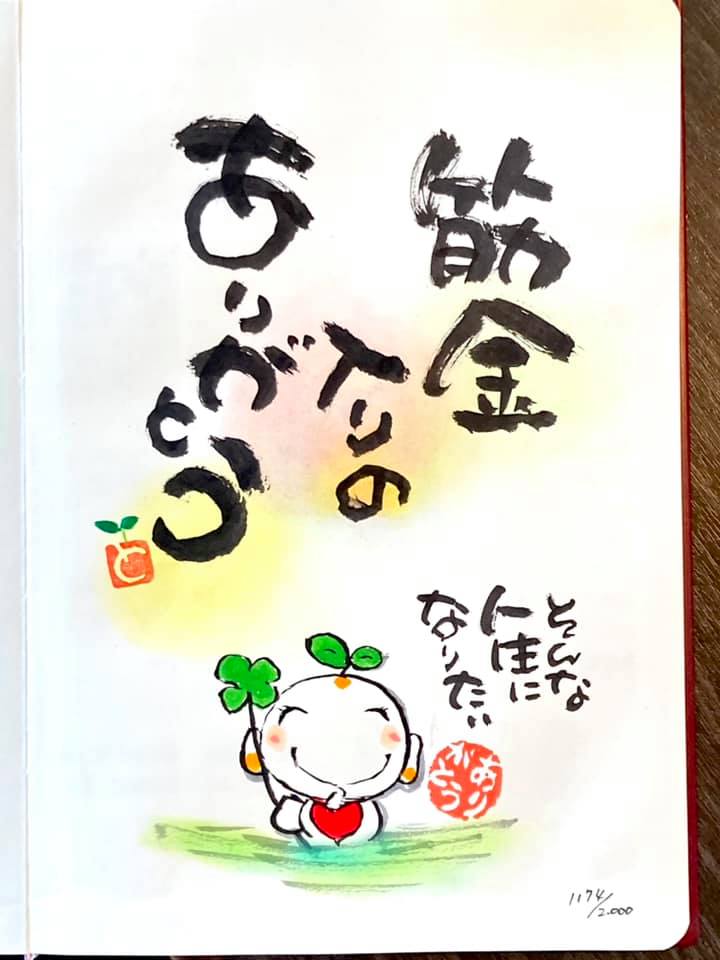 筋金
入りの
ありがとう
と
そんな
人生に
なりたい
あり
がとう
1174/2.000